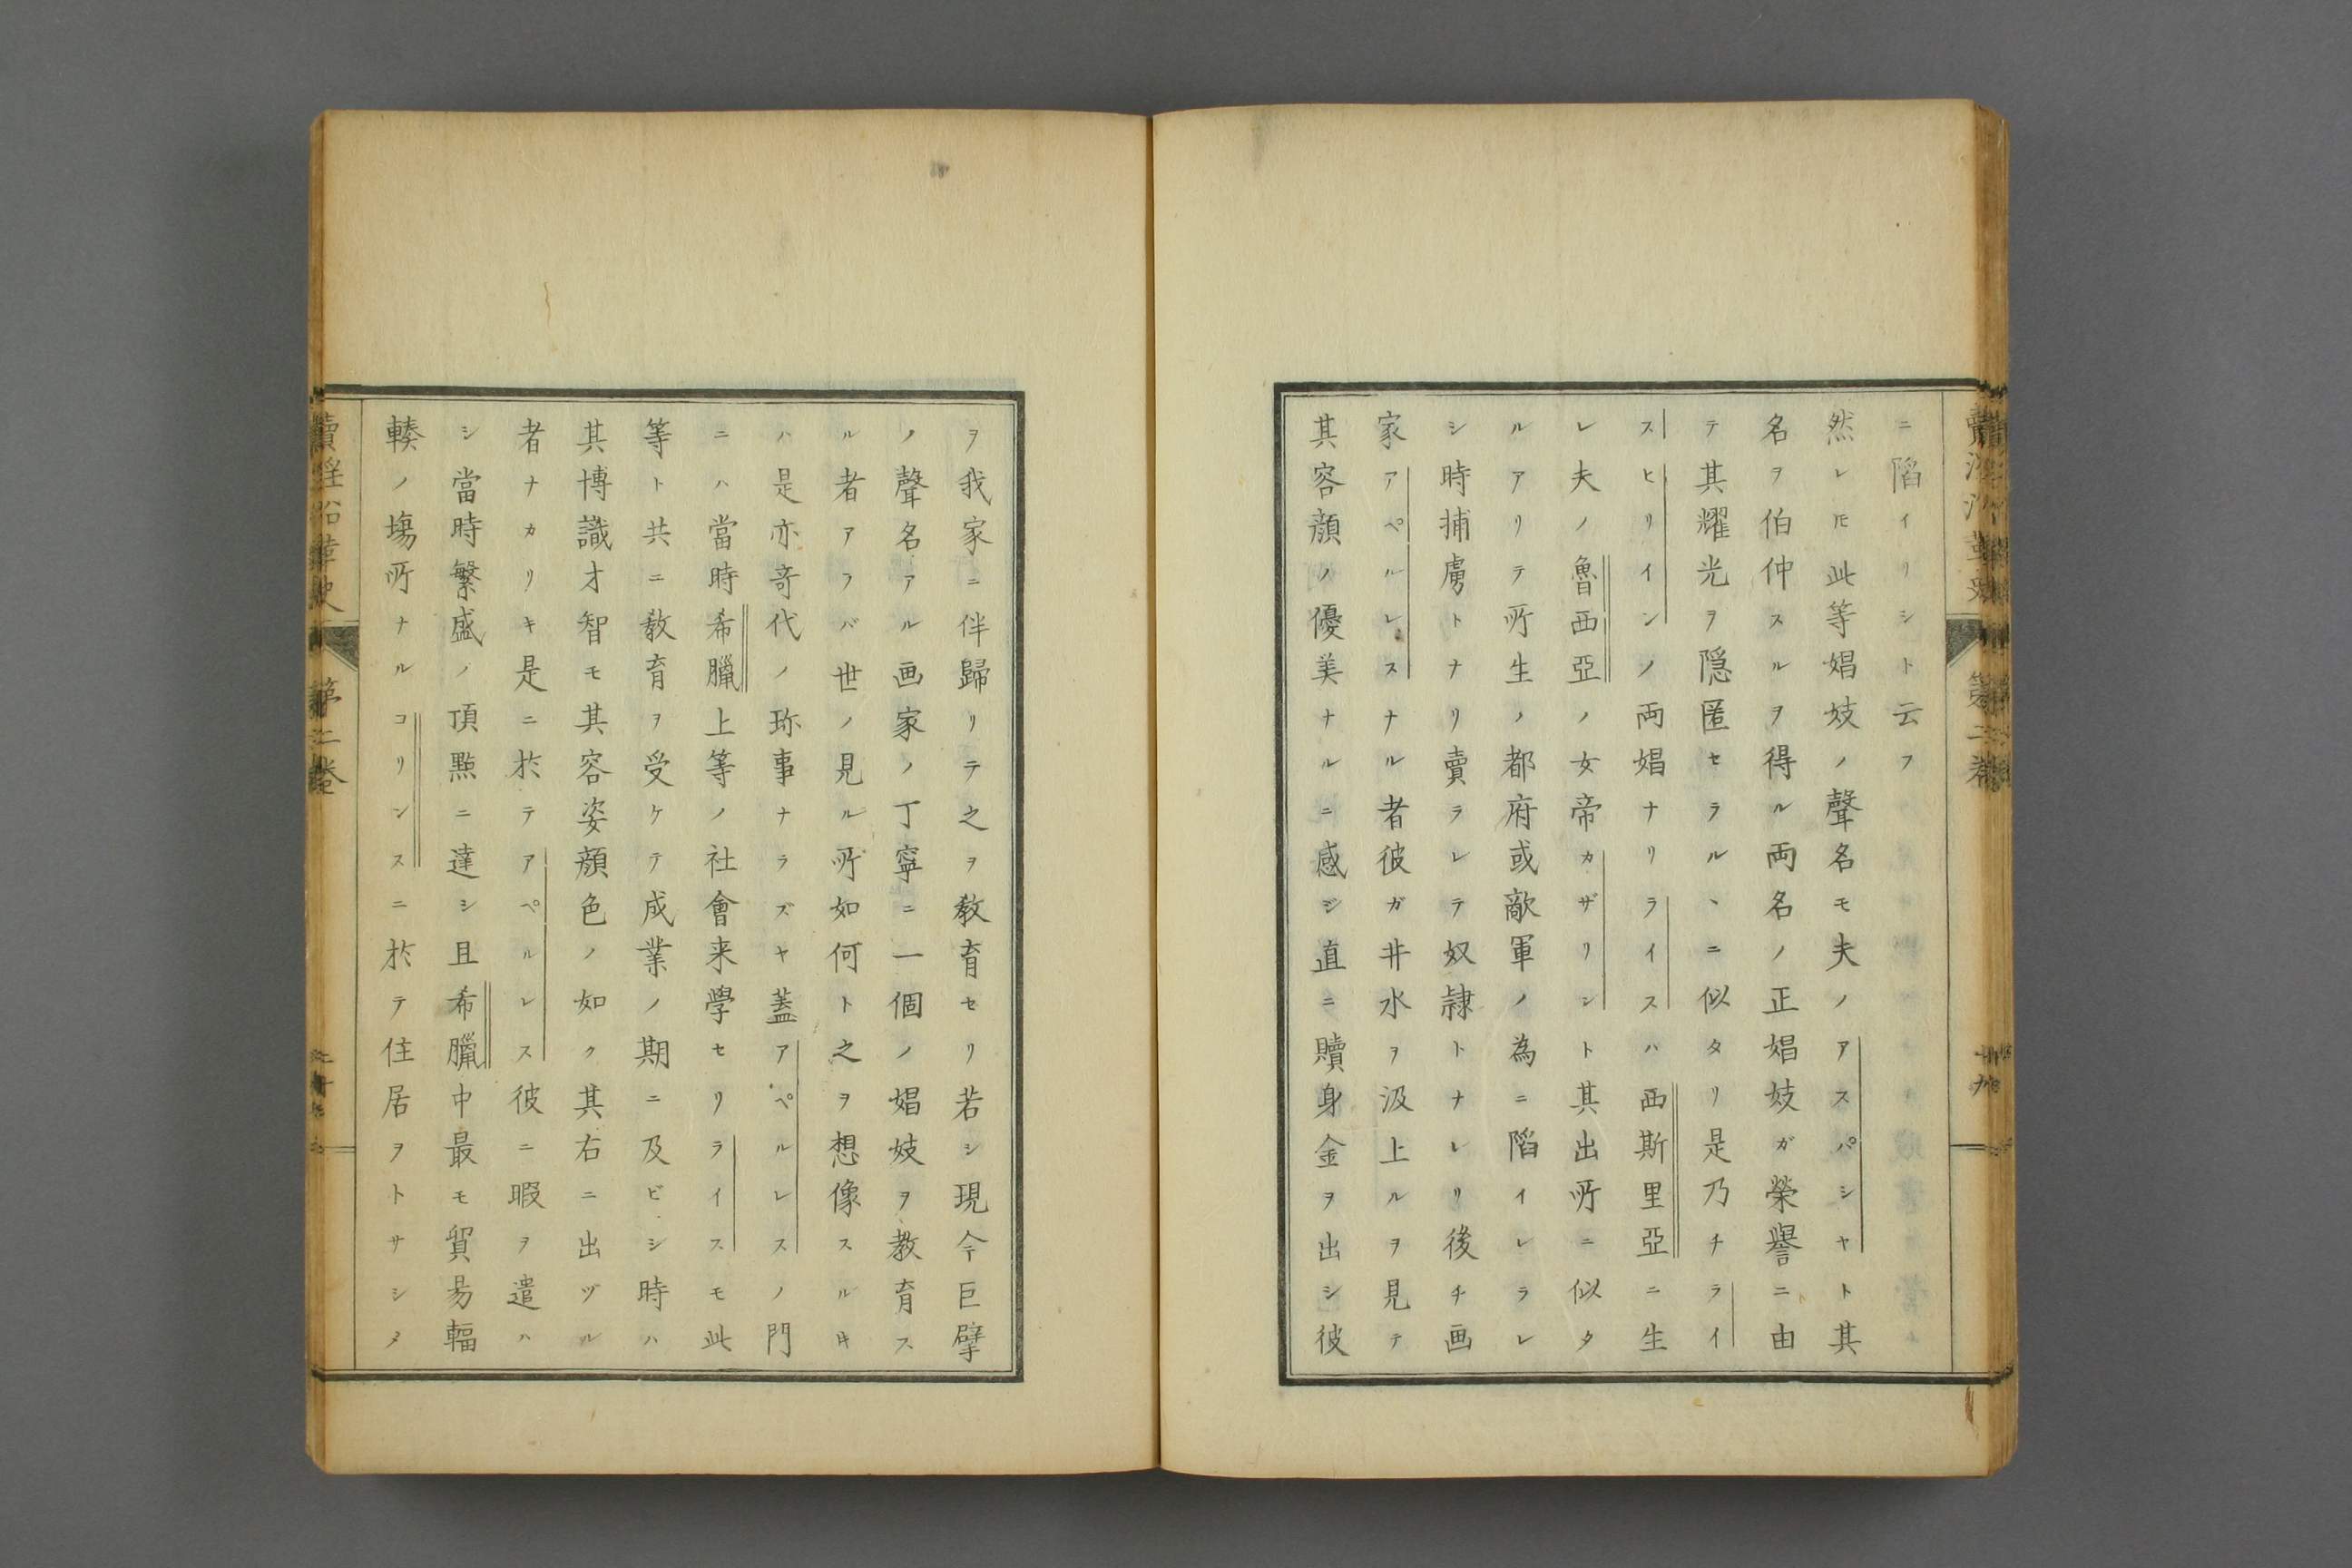 ニ陷イリシト云フ
然レ𪜈此等娼妓ノ聲名モ夫ノアスパシヤト其
名ヲ伯仲スルヲ得ル両名ノ正娼妓ガ榮譽ニ由
テ其耀光ヲ隠匿セラルヽニ似タリ是乃チライ
スヒリインノ両娼ナリライスハ西斯里亞ニ生
レ夫ノ魯西亞ノ女帝カザリント其出所ニ似タ
ルアリテ所生ノ都府或敵軍ノ為ニ陷イレラレ
シ時捕虜トナリ賣ラレテ奴隷トナレリ後チ画
家アペルレスナル者彼ガ井水ヲ汲上ルヲ見テ
其容顔ノ優美ナルニ感ジ直ニ贖身金ヲ出シ彼
ヲ我家ニ伴歸リテ之ヲ教育セリ若シ現今巨擘
ノ聲名アル画家ノ丁寧ニ一個ノ娼妓ヲ教育ス
ル者アラバ世ノ見ル所如何ト之ヲ想像スルキ
ハ是亦竒代ノ珎事ナラズヤ蓋アペルレスノ門
ニハ當時希臘上等ノ社會来學セリライスモ此
等ト共ニ教育ヲ受ケテ成業ノ期ニ及ビシ時ハ
其博識才智モ其容姿顔色ノ如ク其右ニ出ヅル
者ナカリキ是ニ於テアペルレス彼ニ暇ヲ遣ハ
シ當時繁盛ノ頂點ニ達シ且希臘中最モ貿易輻
輳ノ塲所ナルコリンスニ於テ住居ヲトサシタ
賣淫沿革史 第二卷